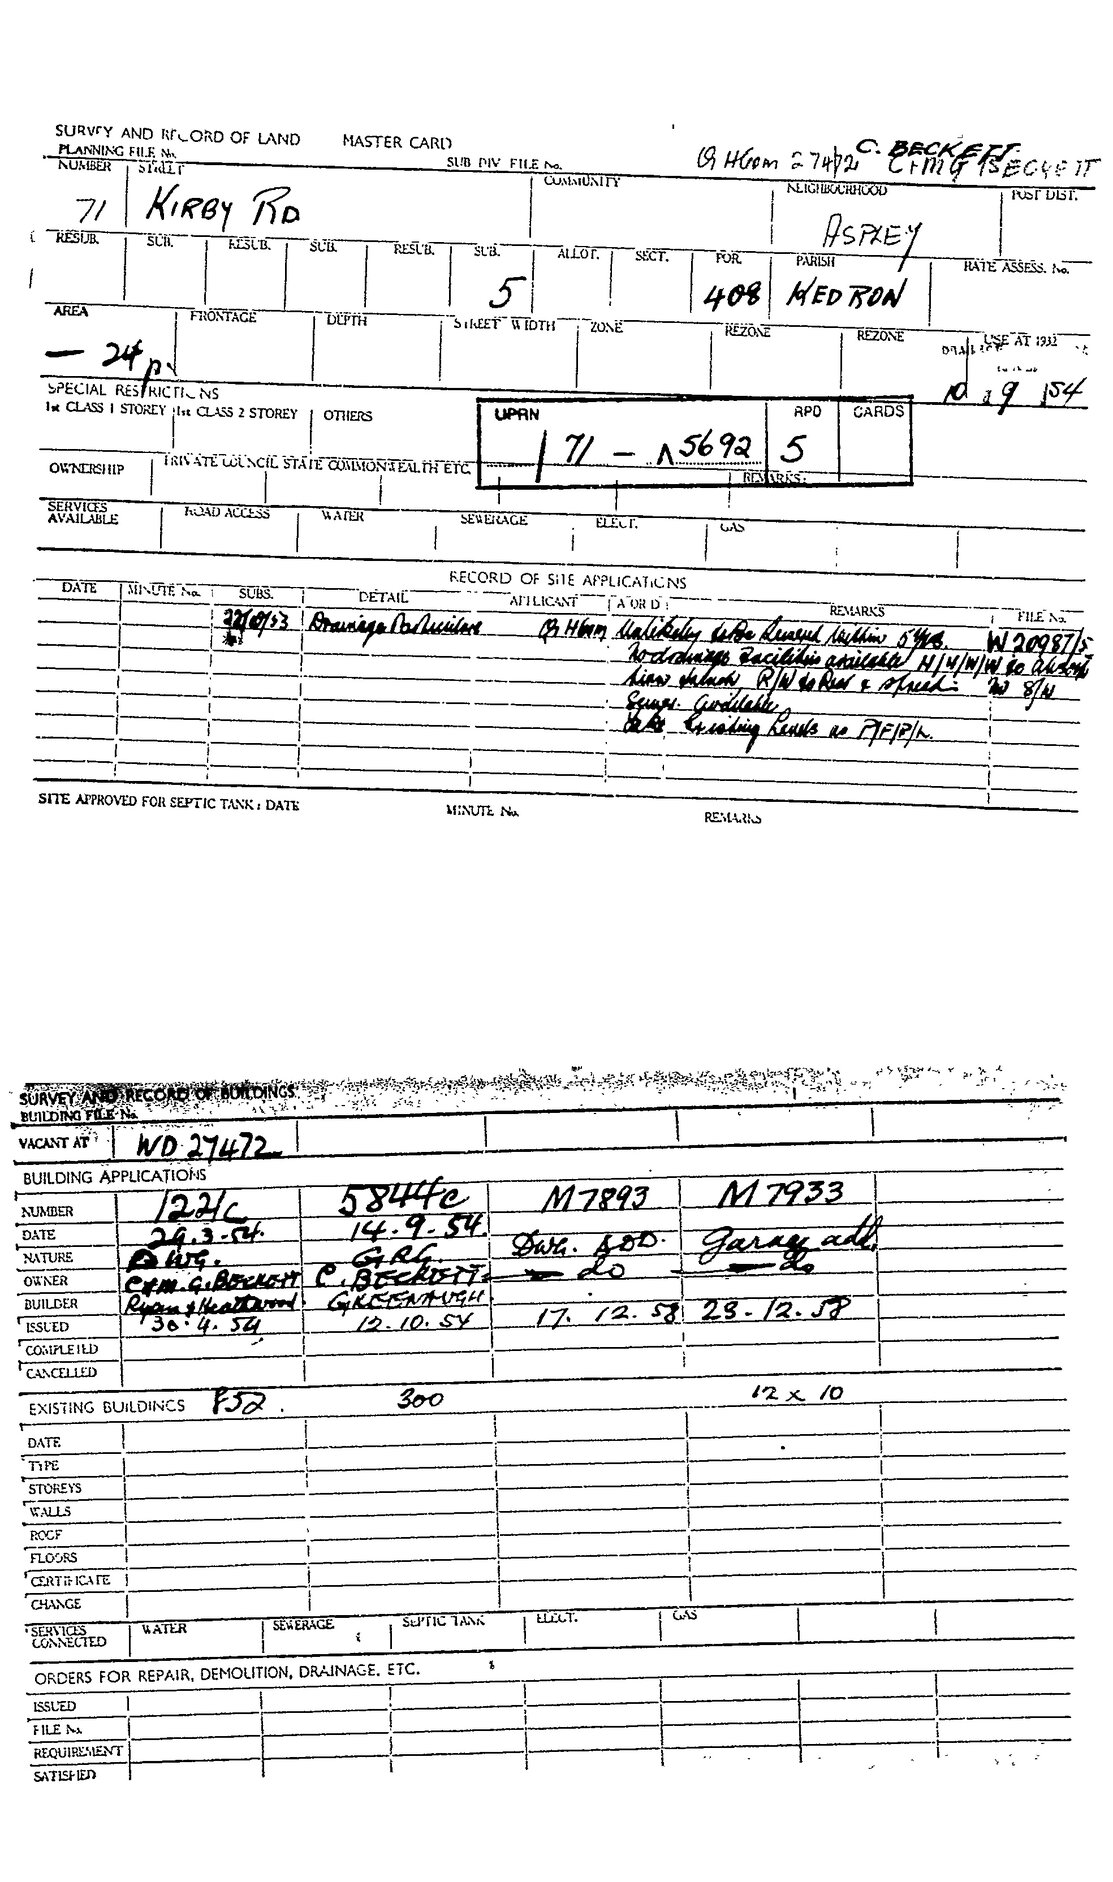 SURVEY AND RECORD OF LAND MASTER CARD
C. BECKETT.
PLANNING FILE No. SUB DIV FILE No. Q H Com 27472 C+MG BECKETT
NUMBER STREET COMMUNITY NEIGHBOURHOOD POST DIST.
71 KIRBY RD ASPLEY
RESUB. SUB. RESUB. SUB. RESUB. SUB. ALLOT. SECT. POR. PARISH RATE ASSESS. No.
5 408 KEDRON
AREA FRONTAGE DEPTH STREET WIDTH ZONE REZONE REZONE USE AT 1932
— 24 p.
SPECIAL RESTRICTIONS 10 . 9 . 54
1st CLASS 1 STOREY 1st CLASS 2 STOREY OTHERS UPRN RPD CARDS
171 — A 5692 5
OWNERSHIP PRIVATE COUNCIL STATE COMMONWEALTH ETC. REMARKS:
SERVICES AVAILABLE ROAD ACCESS WATER SEWERAGE ELECT. GAS
RECORD OF SITE APPLICATIONS
DATE MINUTE No. SUBS. DETAIL APPLICANT A OR D REMARKS FILE No.
22/10/53 Drainage Particulars Q H Com Unlikely to be Sewered Within 5 yrs. W 20987/5
No drainage facilities available H/H/W/W to
R/W to Rear & spread
Sewer available
Existing Levels as P/F/P/L.
SITE APPROVED FOR SEPTIC TANK: DATE MINUTE No. REMARKS
SURVEY AND RECORD OF BUILDINGS
BUILDING FILE No.
VACANT AT WD 27472
BUILDING APPLICATIONS
NUMBER 1221c 5844c M7893 M7933
DATE 29.3.54. 14.9.54.
NATURE DWG. GRG Dwg. ADD. Garage add.
OWNER C+M.G. BECKETT C. BECKETT — do — do
BUILDER Ryan & Heathwood G KEENAUGH
ISSUED 30.4.54 12.10.54 17.12.58 23-12.58
COMPLETED
CANCELLED
EXISTING BUILDINGS 852. 300 12 x 10
DATE
TYPE
STOREYS
WALLS
ROOF
FLOORS
CERTIFICATE
CHANGE
SERVICES CONNECTED WATER SEWERAGE SEPTIC TANK ELECT. GAS
ORDERS FOR REPAIR, DEMOLITION, DRAINAGE. ETC.
ISSUED
FILE No.
REQUIREMENT
SATISFIED